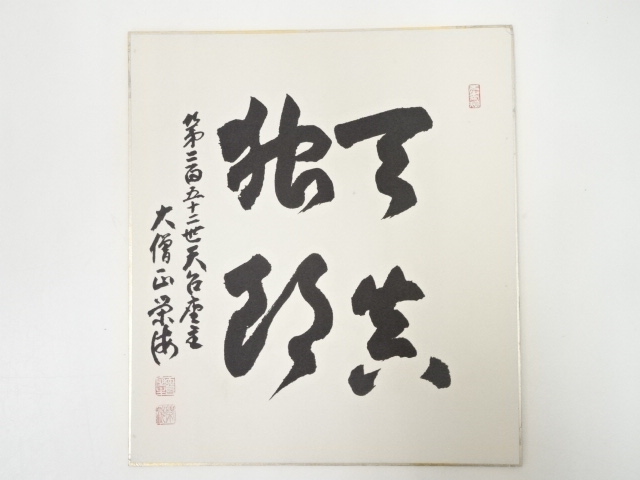 天真
独朗
第二百五十二世天台座主
大僧正栄海